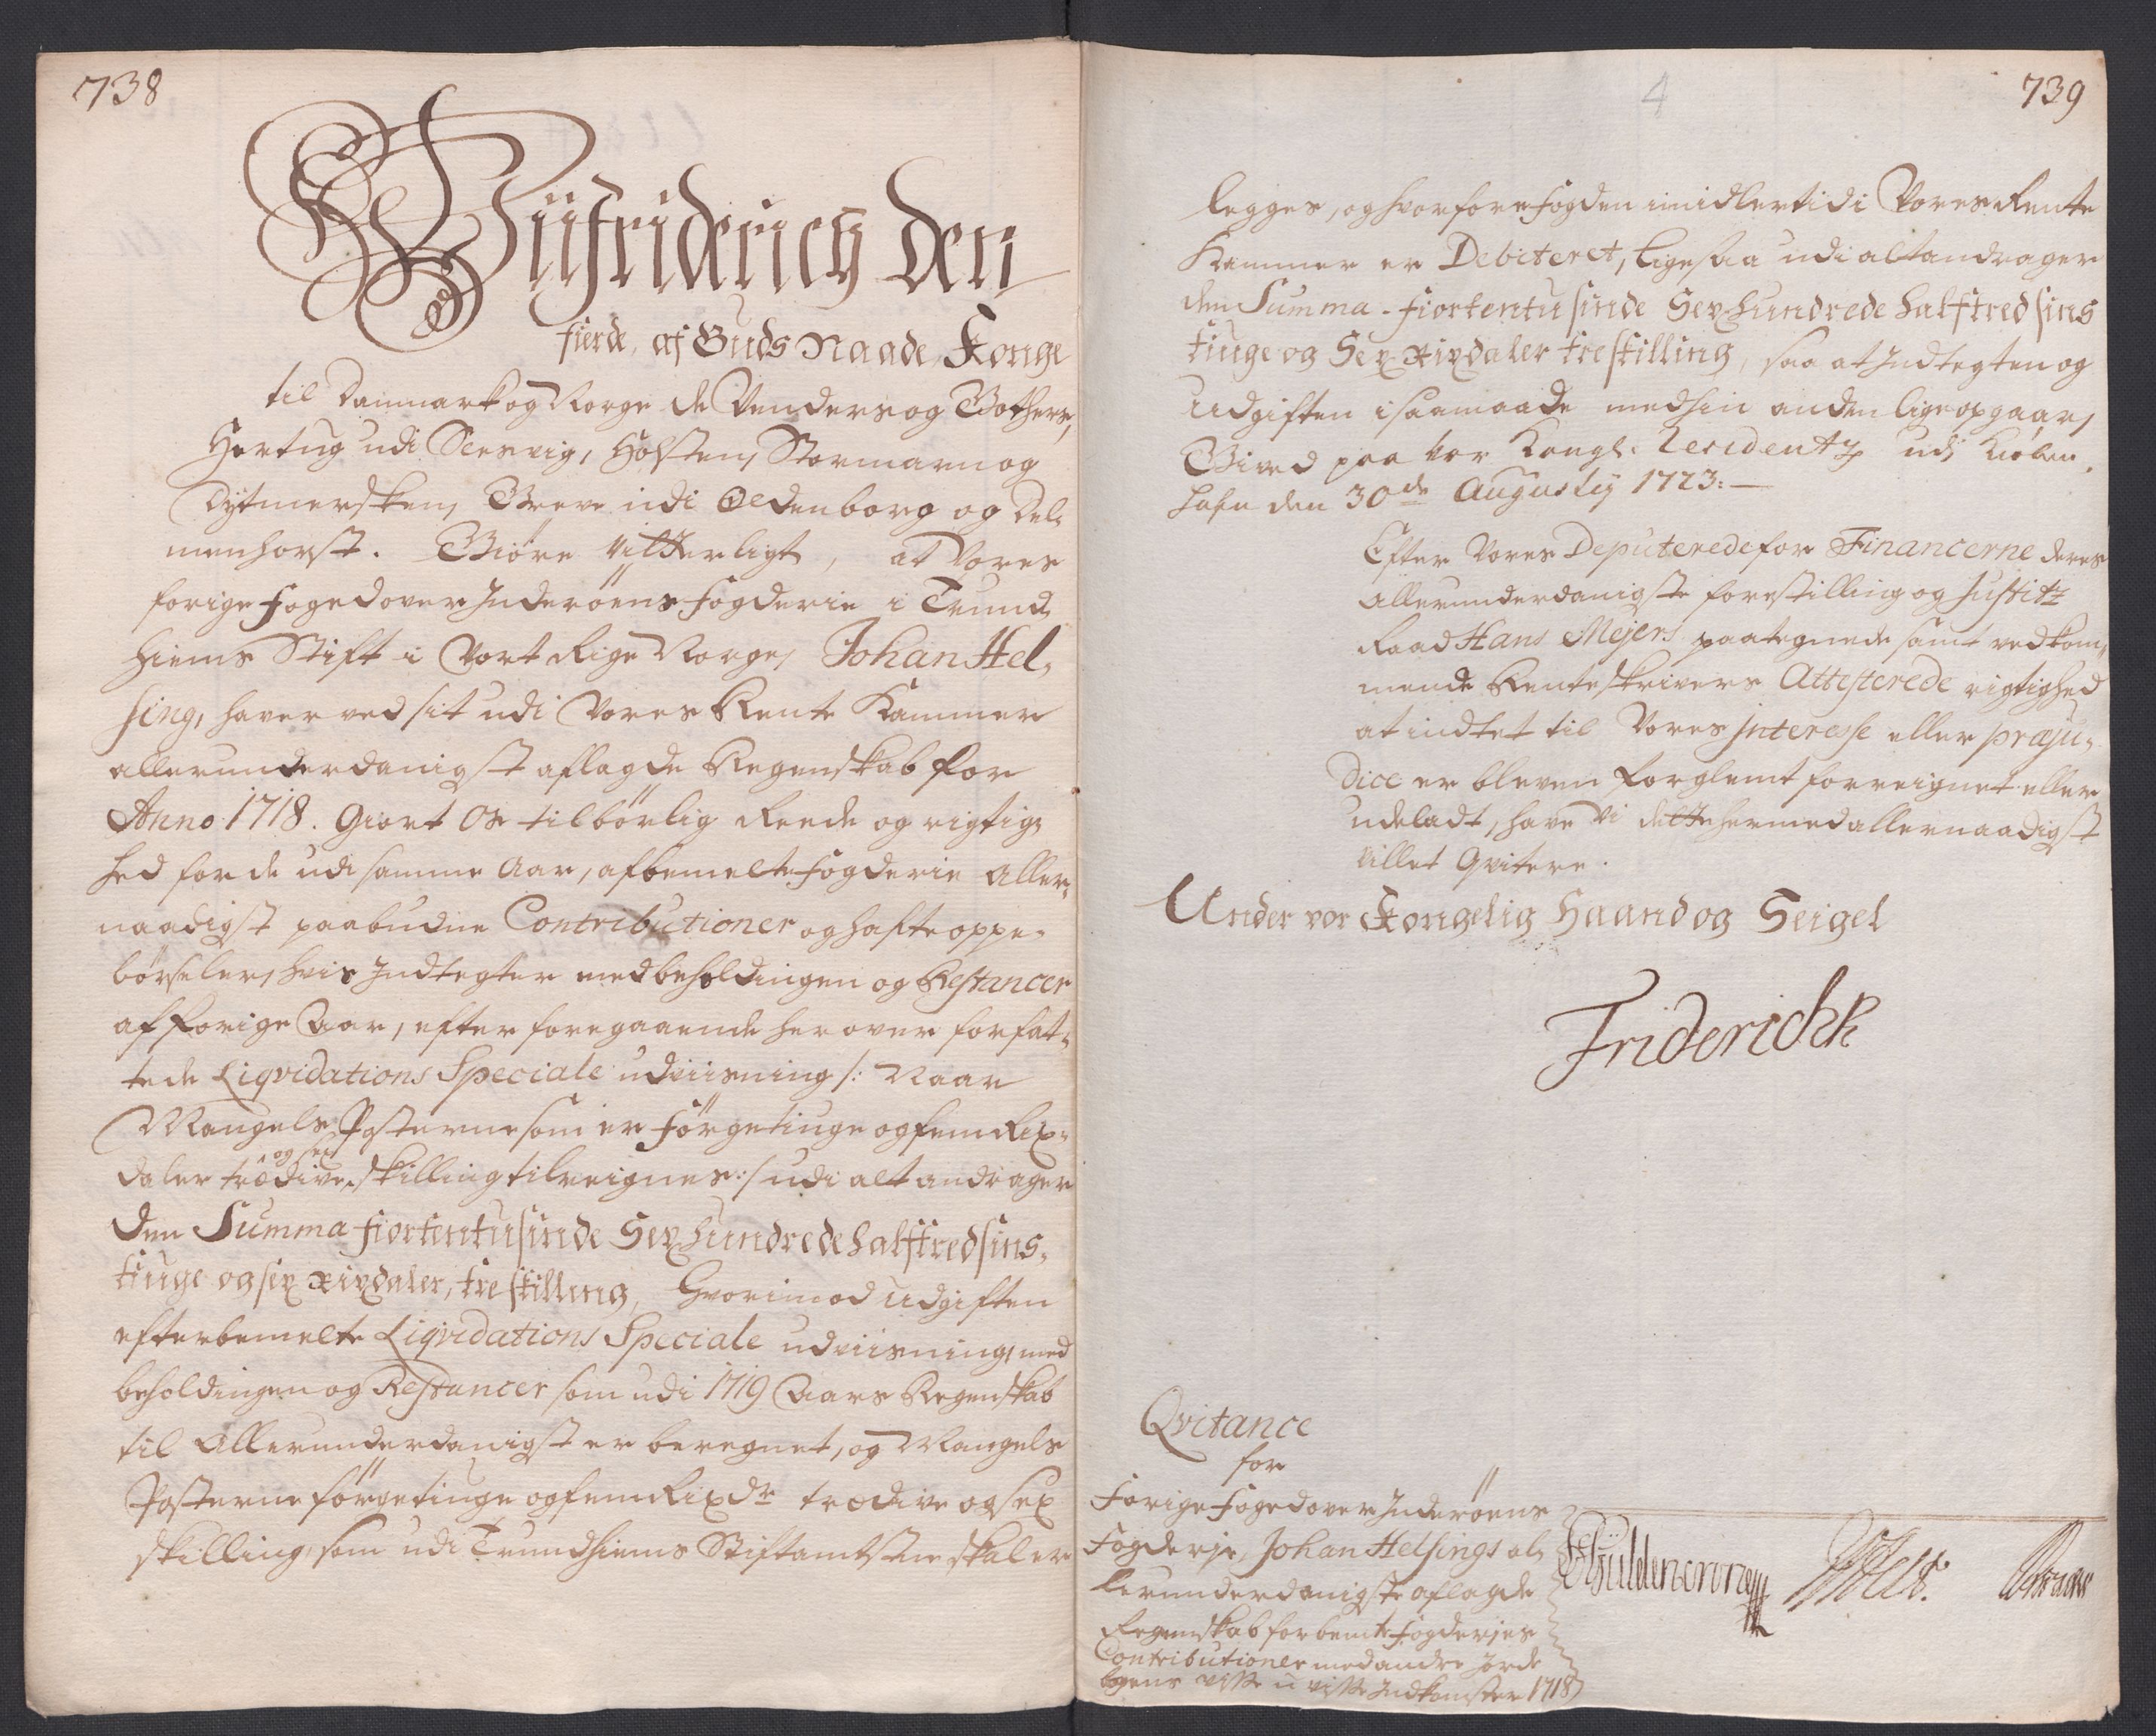 738
Wii Friderich den
fierde, af Guds Naade, Konge
til Danmark og Norge de Venders og Gothers,
Hertug udi Slesvig, Holsten, Stormarn og
Dytmersken, Greve udi Oldenborg og Del-
menhorst. Giøre vitterligt, at Vores
forige Foged over Inderøens Fogderie i Trund-
hiems Stift i Vort Rige Norge, Johan Hel-
sing, haver ved sit udi Vores Rente Kammer
allerunderdanigst aflagde Regenskab for
Anno 1718. Giort Os tilbørlig Reede og rigtig-
hed for de udi samme Aar, af bemelte Fogderie Aller-
naadigst paabudne Contributioner og hafte oppe-
børseler, hvis Indtegter med beholdingen og Restancer
af forige Aar, efter foregaaende herover forfat-
tede Liqvidations Speciale udviisning /: Naar
Mangels Posterne som er førgetiuge og fem Rix-
daler trædive og sex skilling tilreignes :/ udi alt andrager
den Summa fiortentusinde Sex hundrede halftredsins-
tiuge og sex Rixdaler, tre skilling, Hvorimod udgiften
efter bemelte Liqvidations Speciale udviisning, med
beholdingen og Restancer som udi 1719 Aars Regenskab
til Allerunderdanigst er beregnet, og Mangels
Posterne førgetiuge og fem Rixdr trædive og sex
skilling, som udi Trundhiems Stiftamtstue skal er
4
739
legges, og hvorfore Fogden imidlertid i Vores Rente
Kammer er Debiteret, ligesaa udi alt andrager
den Summa - fiortentusinde Sex hundrede halftredsins
tiuge og Sex Rixdaler tre skilling, saa at Indtegten og
Udgiften i saamaade med hin anden lige opgaar,
Gived paa vor Kongl. Residentz udi Kiøben-
hafn den 30de Augustij 1723:
Efter Vores Deputerede for Financerne deres
Allerunderdanigste forestilling og Justitz
Raad Hans Mejers paategnede samt vedkom-
mende Renteskrivers Attesterede rigtighed
at indtet til Vores Interesse eller præju-
dice er bleven forglemt forreignet eller
udeladt, have Vi dette hermed allernaadigst
villet Qvitere.
Under vor Kongelig Haand og Seigel
Friderich R
Qvitance
for
Forige Foged over Inderøens
Fogderje, Johan Helsings al-
lerunderdanigste aflagde
Regenskab for bemte Fogderjes
Contributioner med andre Jorde
bogens visse u visse Indkomster 1718
Güldencrone